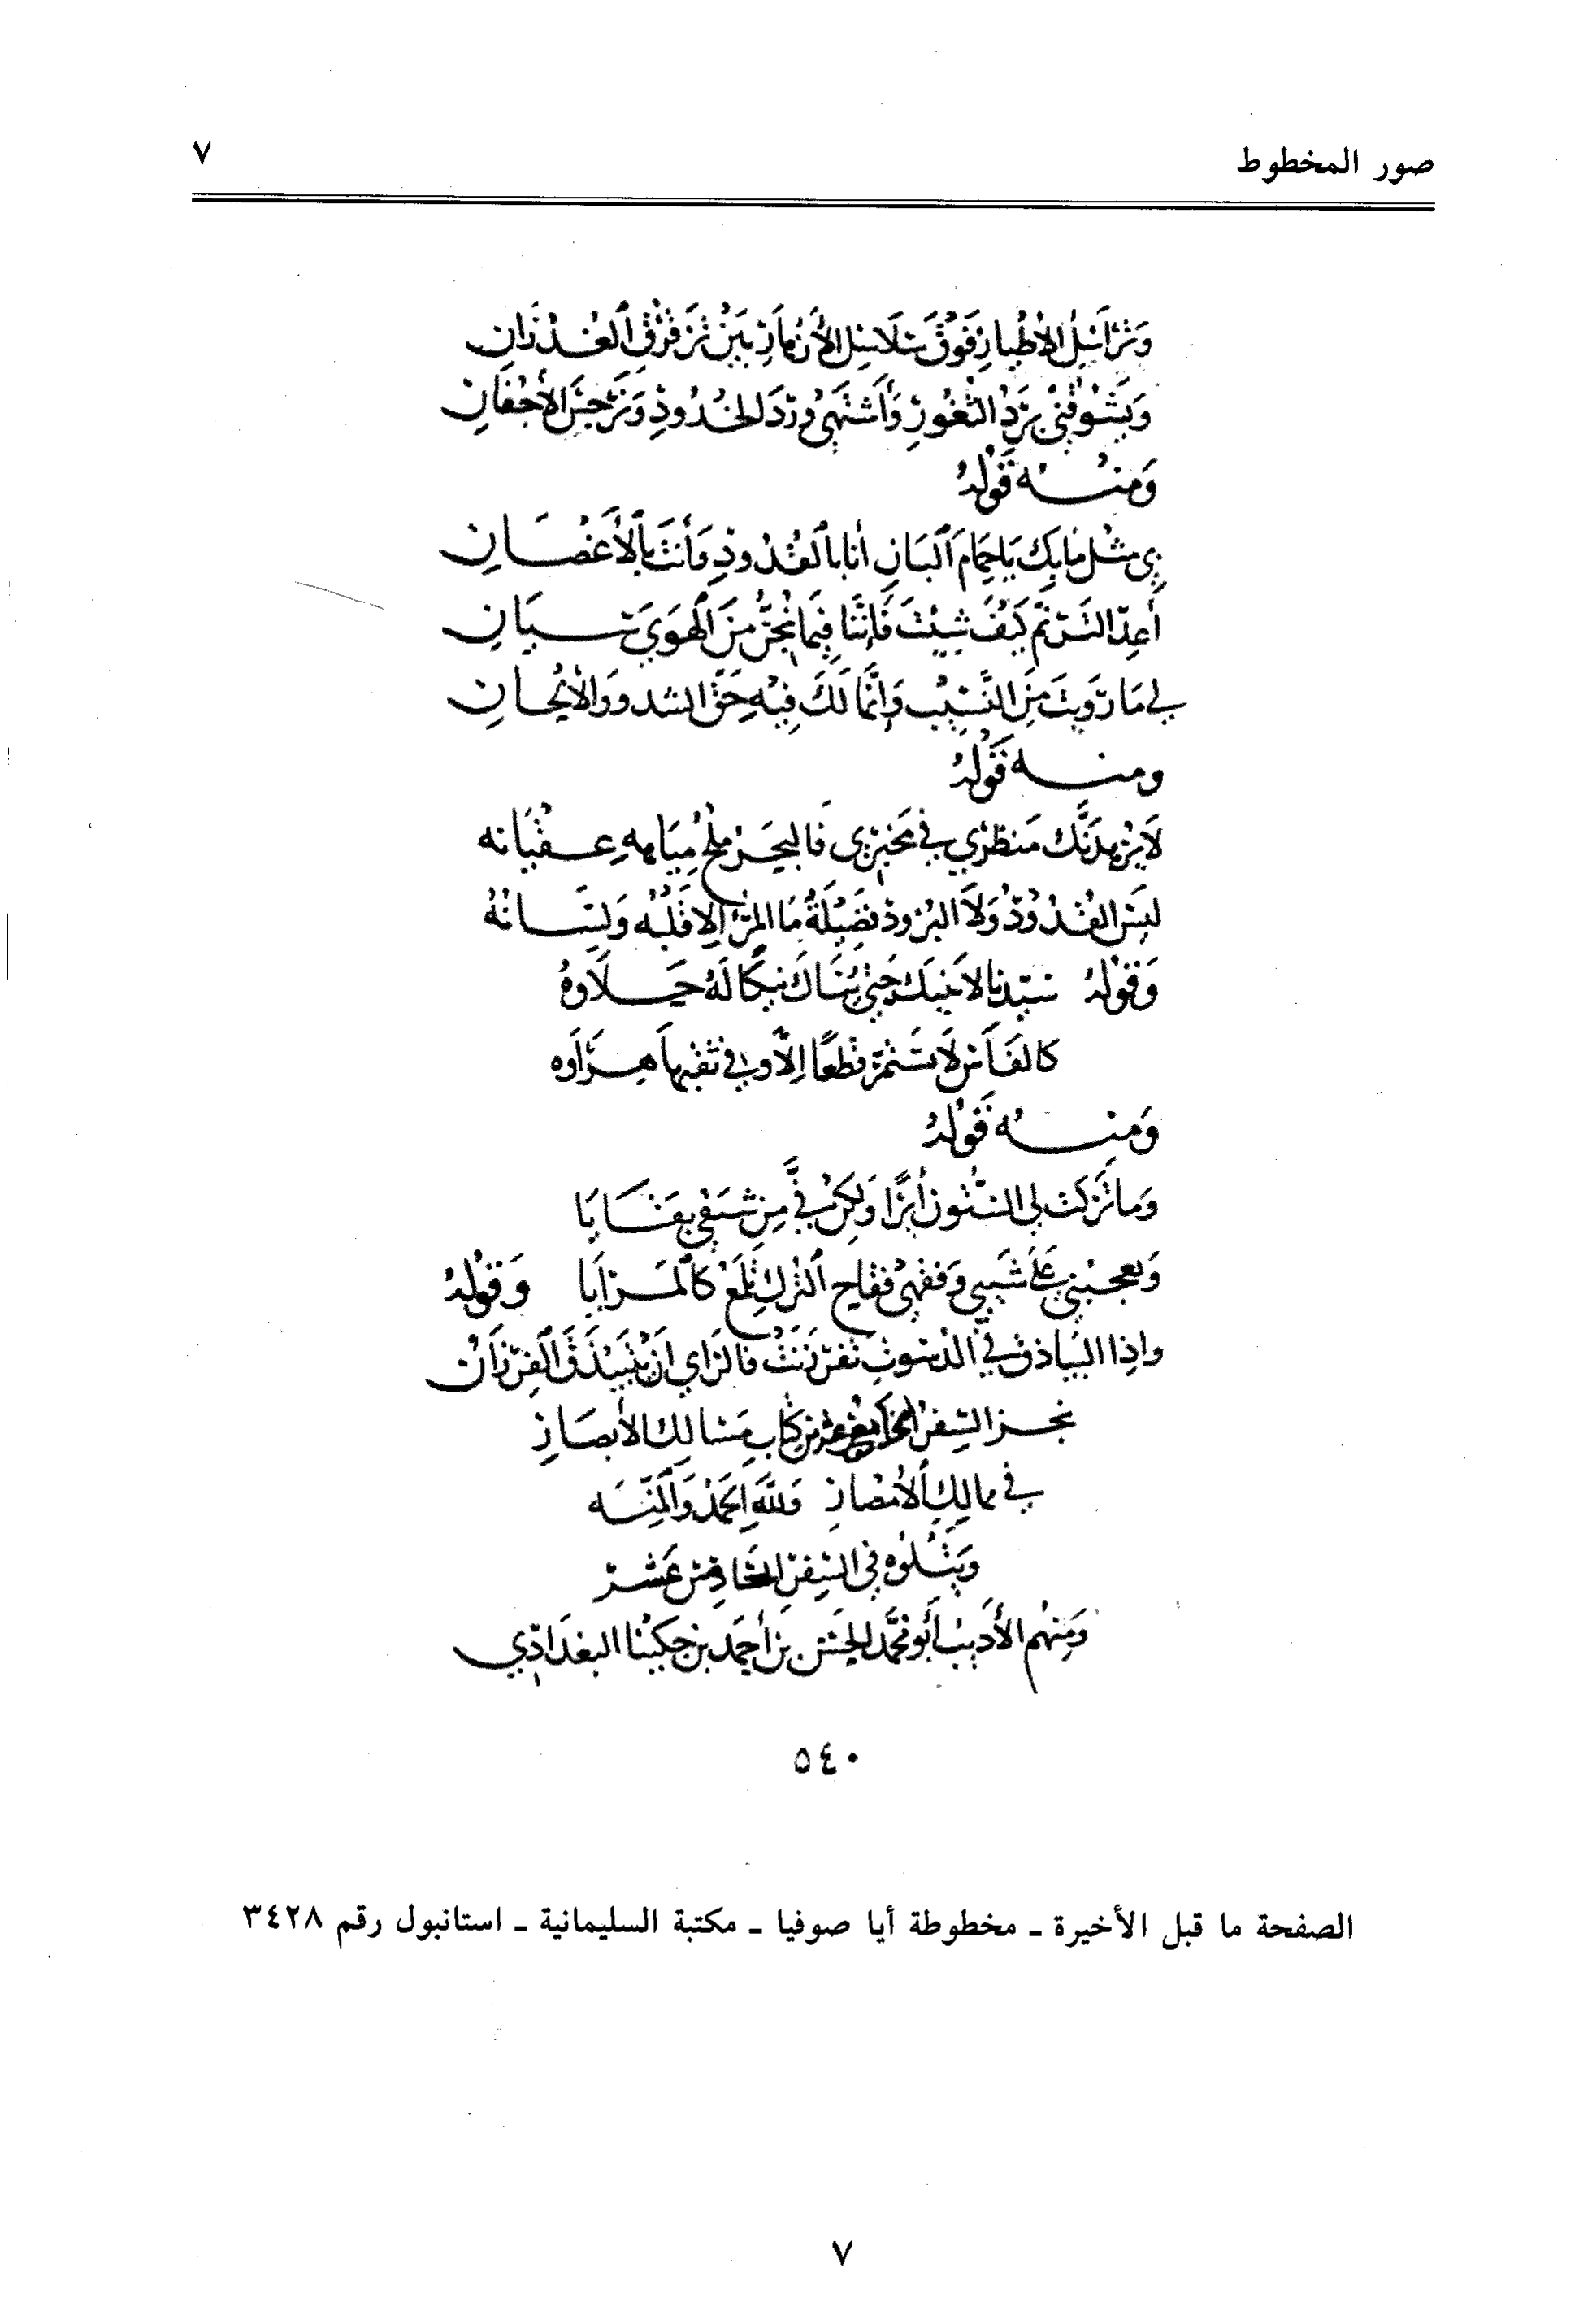 صور المخطوط
٧
وَتَرَاسُلُ الأَطْيارِ فَوْقَ سَلَاسِلِ الأَنهارِ بَيْنَ تَرَقْرُقِ الغُدْرَانِ
وَيَشُوقُني بَرَدُ الثُّغُورِ وَأَشْتَهِي وَرْدَ الخُدُودِ وَنَرْجِسَ الأَجْفَانِ
وَمِنْهُ قَوْلُهُ
بِي مِثْلُ مَا بِكَ يَا حَمَامَ الْبَانِ أَنَا بِالقُدُودِ وَأَنتَ بِالأَغْصَانِ
أَعِدِ التَّرَنُّمَ كَيْفَ شِئْتَ فَإِنَّنَا فِيمَا نُجِنُّ مِنَ الْهَوَى سِيَانِ
لِي مَا رَوِيتَ مِنَ النَّسِيْبِ وَإِنَّمَا لَكَ فِيْهِ حَقُّ الشدو وَالأَلْحَانِ
ومنه قَوْلُهُ
لَا يَزْهِدَنَّكَ مَنظَرِي فِي مَخْبَرِي فَالبَحْرُ مِلْحٌ مِيَاهِهِ عِقْيَانه
لَيْسَ القُدُودُ وَلَا البُرُودُ فَضِيْلَةً مَا المَرْءُ إِلا قَلْبُه وَلِسَانُهُ
وَقَوْلُهُ سَيّدنا لَا يَنِيْكُ حَتَّى يُنَاكَ نَيْكًا لَهُ حَلَاوهُ
كالفَأْسِ لَا تَسْتَمِرُّ قَطْعًا إِلَّا وَفِي ثقْبِهَا هِرَاوه
وَمِنْهُ قَوْلُهُ
وَمَا تَرَكت لِي السُّنُون أَيْرًا وَلكِنْ فِيَّ مِن شَبَقِي بَقَايَا
وَيُعجبُنِي عَلَى شَيْبِي وَفِقْهِي فِقَاحِ التُرْكِ تَلْمَعُ كَالْمَرَايَا وَقَوْلُهُ
وَإِذا البَيَاذقُ فِي الدُسُوتِ تَفَرْزَنَتْ فَالرَّأي أَنْ يَتَبَيْذَقَ الفِرْزَانُ
نجز السِّفر عشر من كتاب مَسَالِك الأبصَارِ
في ممالك الأَمْصَار وَلله الحَمْدُ وَالْمِنَّه
وَيَتْلُوه في السِّفر عَشَر
وَمِنْهم الأَدِيبُ أَبُو مُحَمَّد الحَسَن بن أَحمَد بن حكِيْنا البغدَادِي
٥٤٠
الصفحة ما قبل الأخيرة ـ مخطوطة أيا صوفيا ـ مكتبة السليمانية ـ استانبول رقم ٣٤٢٨
٧